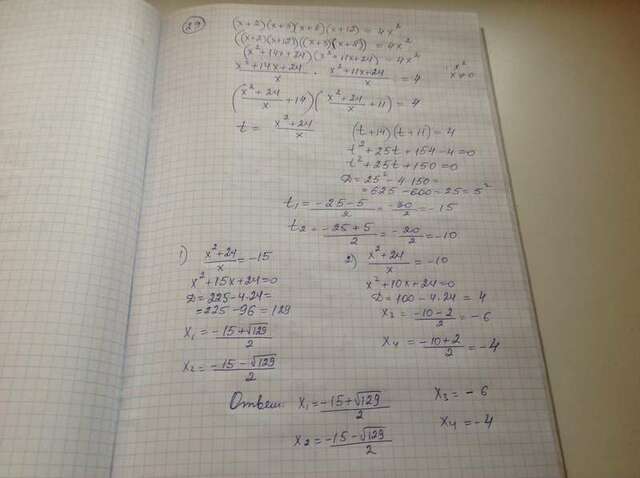 29
(x+2)(x+3)(x+8)(x+12) = 4x²
((x+2)(x+12))((x+3)(x+8)) = 4x²
(x²+14x+24)(x²+11x+24) = 4x²
(x²+14x+24)/x · (x²+11x+24)/x = 4 | : x² x≠0
((x²+24)/x + 14)((x²+24)/x + 11) = 4
t = (x²+24)/x (t+14)(t+11) = 4
t² + 25t + 154 - 4 = 0
t² + 25t + 150 = 0
D = 25² - 4·150 =
= 625 - 600 = 25 = 5²
t₁ = (-25-5)/2 = -30/2 = -15
t₂ = (-25+5)/2 = -20/2 = -10
1) (x²+24)/x = -15
x² + 15x + 24 = 0
D = 225 - 4·24 =
= 225 - 96 = 129
x₁ = (-15+√129)/2
x₂ = (-15-√129)/2
2) (x²+24)/x = -10
x² + 10x + 24 = 0
D = 100 - 4·24 = 4
x₃ = (-10-2)/2 = -6
x₄ = (-10+2)/2 = -4
Ответ: x₁ = (-15+√129)/2 x₃ = -6
x₂ = (-15-√129)/2 x₄ = -4